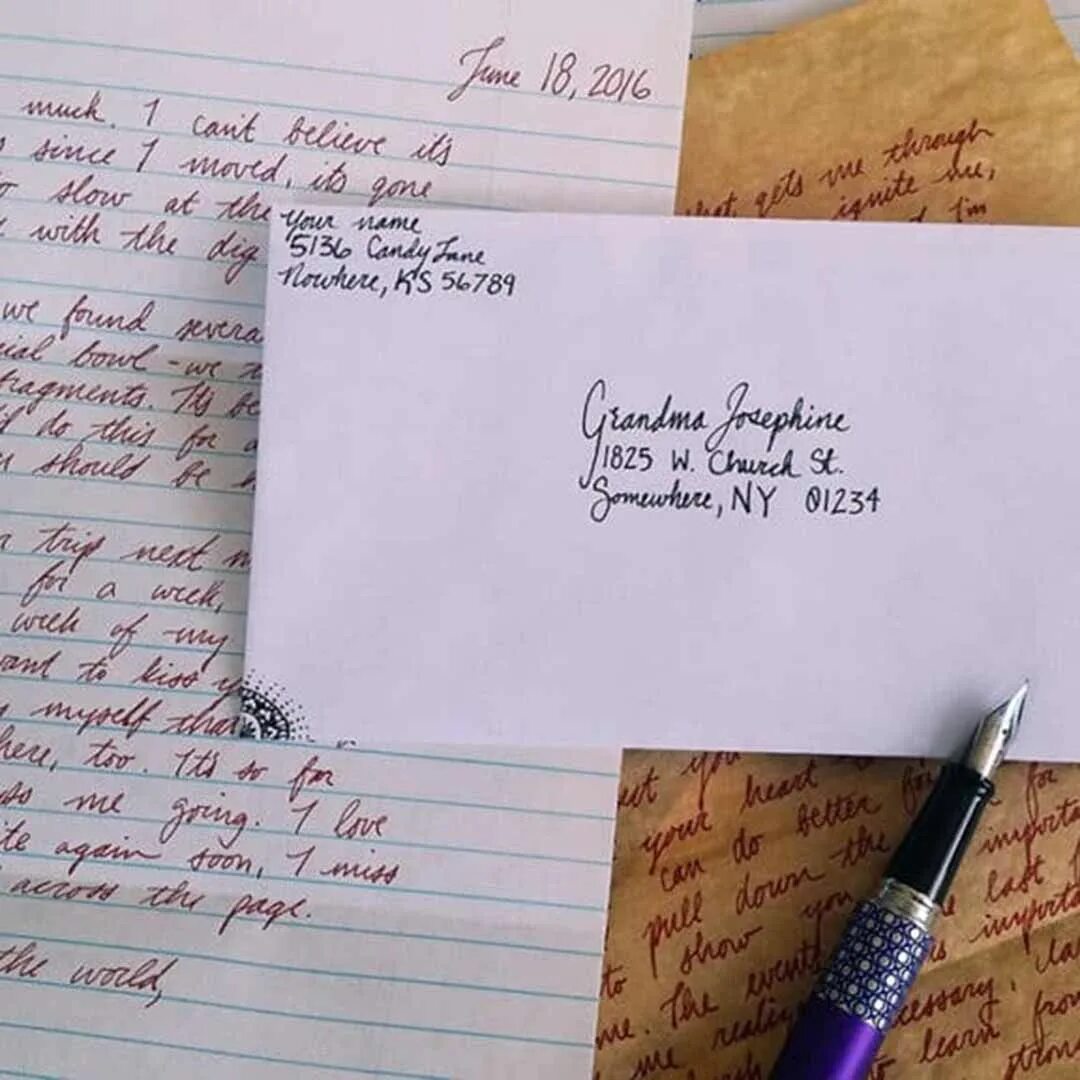 June 18, 2016
much. I can't believe it's
since I moved, it's gone
slow at the
with the dig
we found severa
bowl - we
fragments. It's be
do this for a
should be
trip next
for a week,
week of my
want to kiss
myself that
here, too. It's so far
me going. I love
again soon, I miss
across the page.
the world,
Your name
5136 Candy Lane
Nowhere, KS 56789
Grandma Josephine
1825 W. Church St.
Somewhere, NY 01234
what gets me through
ignite me,
I'm
you
your heart for
can do better importa
pull down the last
to show you importa
me. The events
me cessary.
to learn from
strong